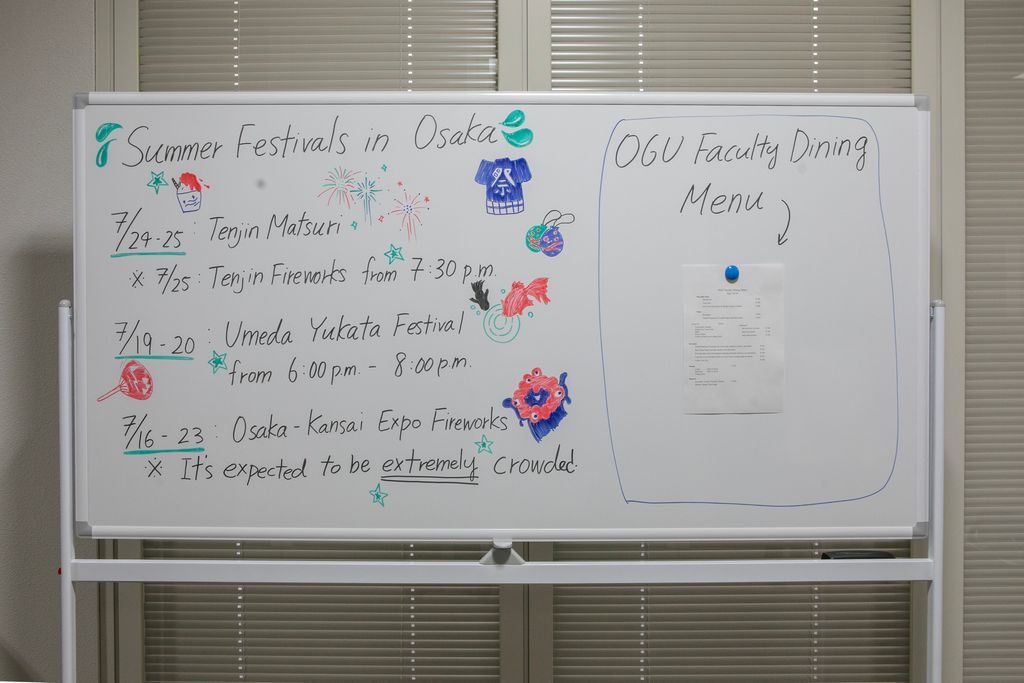 Summer Festivals in Osaka
祭
7/24-25 : Tenjin Matsuri
※ 7/25 : Tenjin Fireworks from 7:30 p.m.
7/19-20 : Umeda Yukata Festival
from 6:00 p.m. - 8:00 p.m.
7/16-23 : Osaka-Kansai Expo Fireworks
※ It's expected to be extremely crowded.
OGU Faculty Dining
Menu